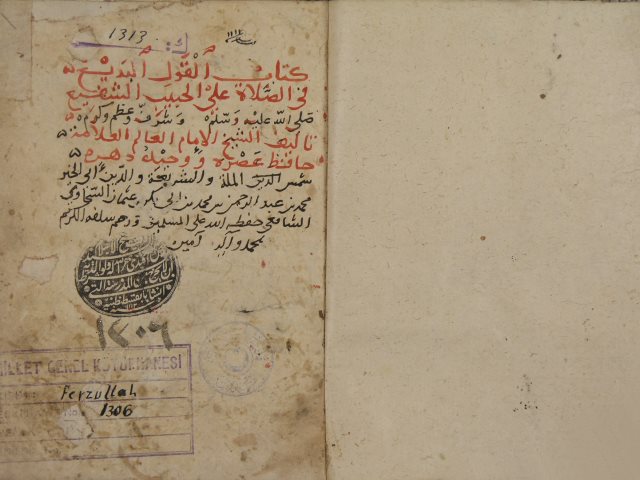 1313
ك:
كتاب القول البديع
في الصلاة على الحبيب الشفيع
صلى الله عليه وسلم وشرف وعظم وكرم
تاليف الشيخ الامام العالم العلامة
حافظ عصره ووحيد دهره
شمس الملة والشريعة والدين ابي الخير
محمد بن عبد الرحمن بن محمد بن ابي بكر بن عثمان السخاوي
الشافعي حفظه الله على المسلمين ورحم سلفه الكريم
بمحمد وآله آمين
١٣٠٦
MILLET GENEL KÜTÜPHANESİ
Feyzullah
No.
1306